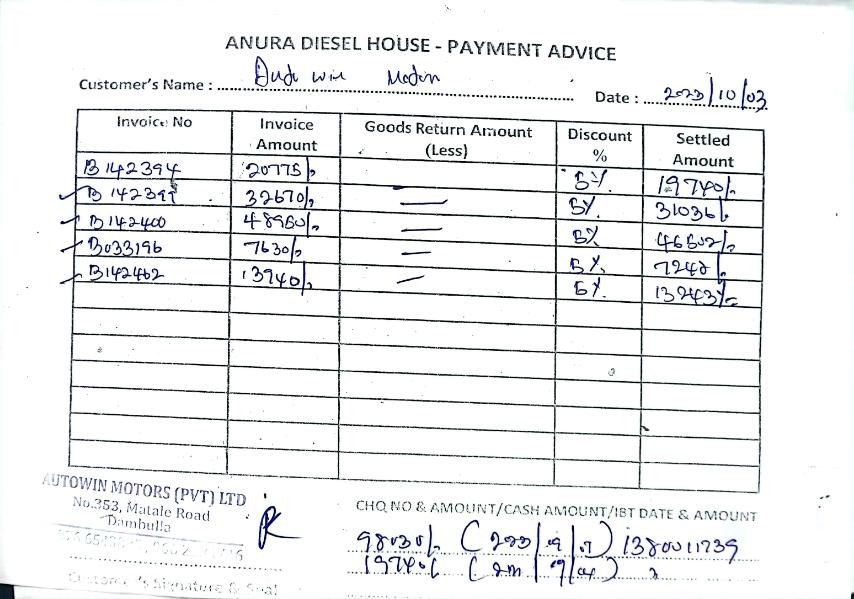 ANURA DIESEL HOUSE - PAYMENT ADVICE
Customer's Name :
Date : 2023/10/03
Invoice No Invoice Amount Goods Return Amount (Less) Discount % Settled Amount
B142394 20775/. 5% 19740/.
B 142397 32670/. — 5% 31036/.
B142400 48950/. — 5% 46502/.
B033196 7630/. — 5% 7248/.
B142462 13940/. — 5% 13243/.
AUTOWIN MOTORS (PVT) LTD
No.353, Matale Road
Dambulla
CHQ NO & AMOUNT/CASH AMOUNT/IBT DATE & AMOUNT
98030/.
19740/.
Customer's Signature & Seal